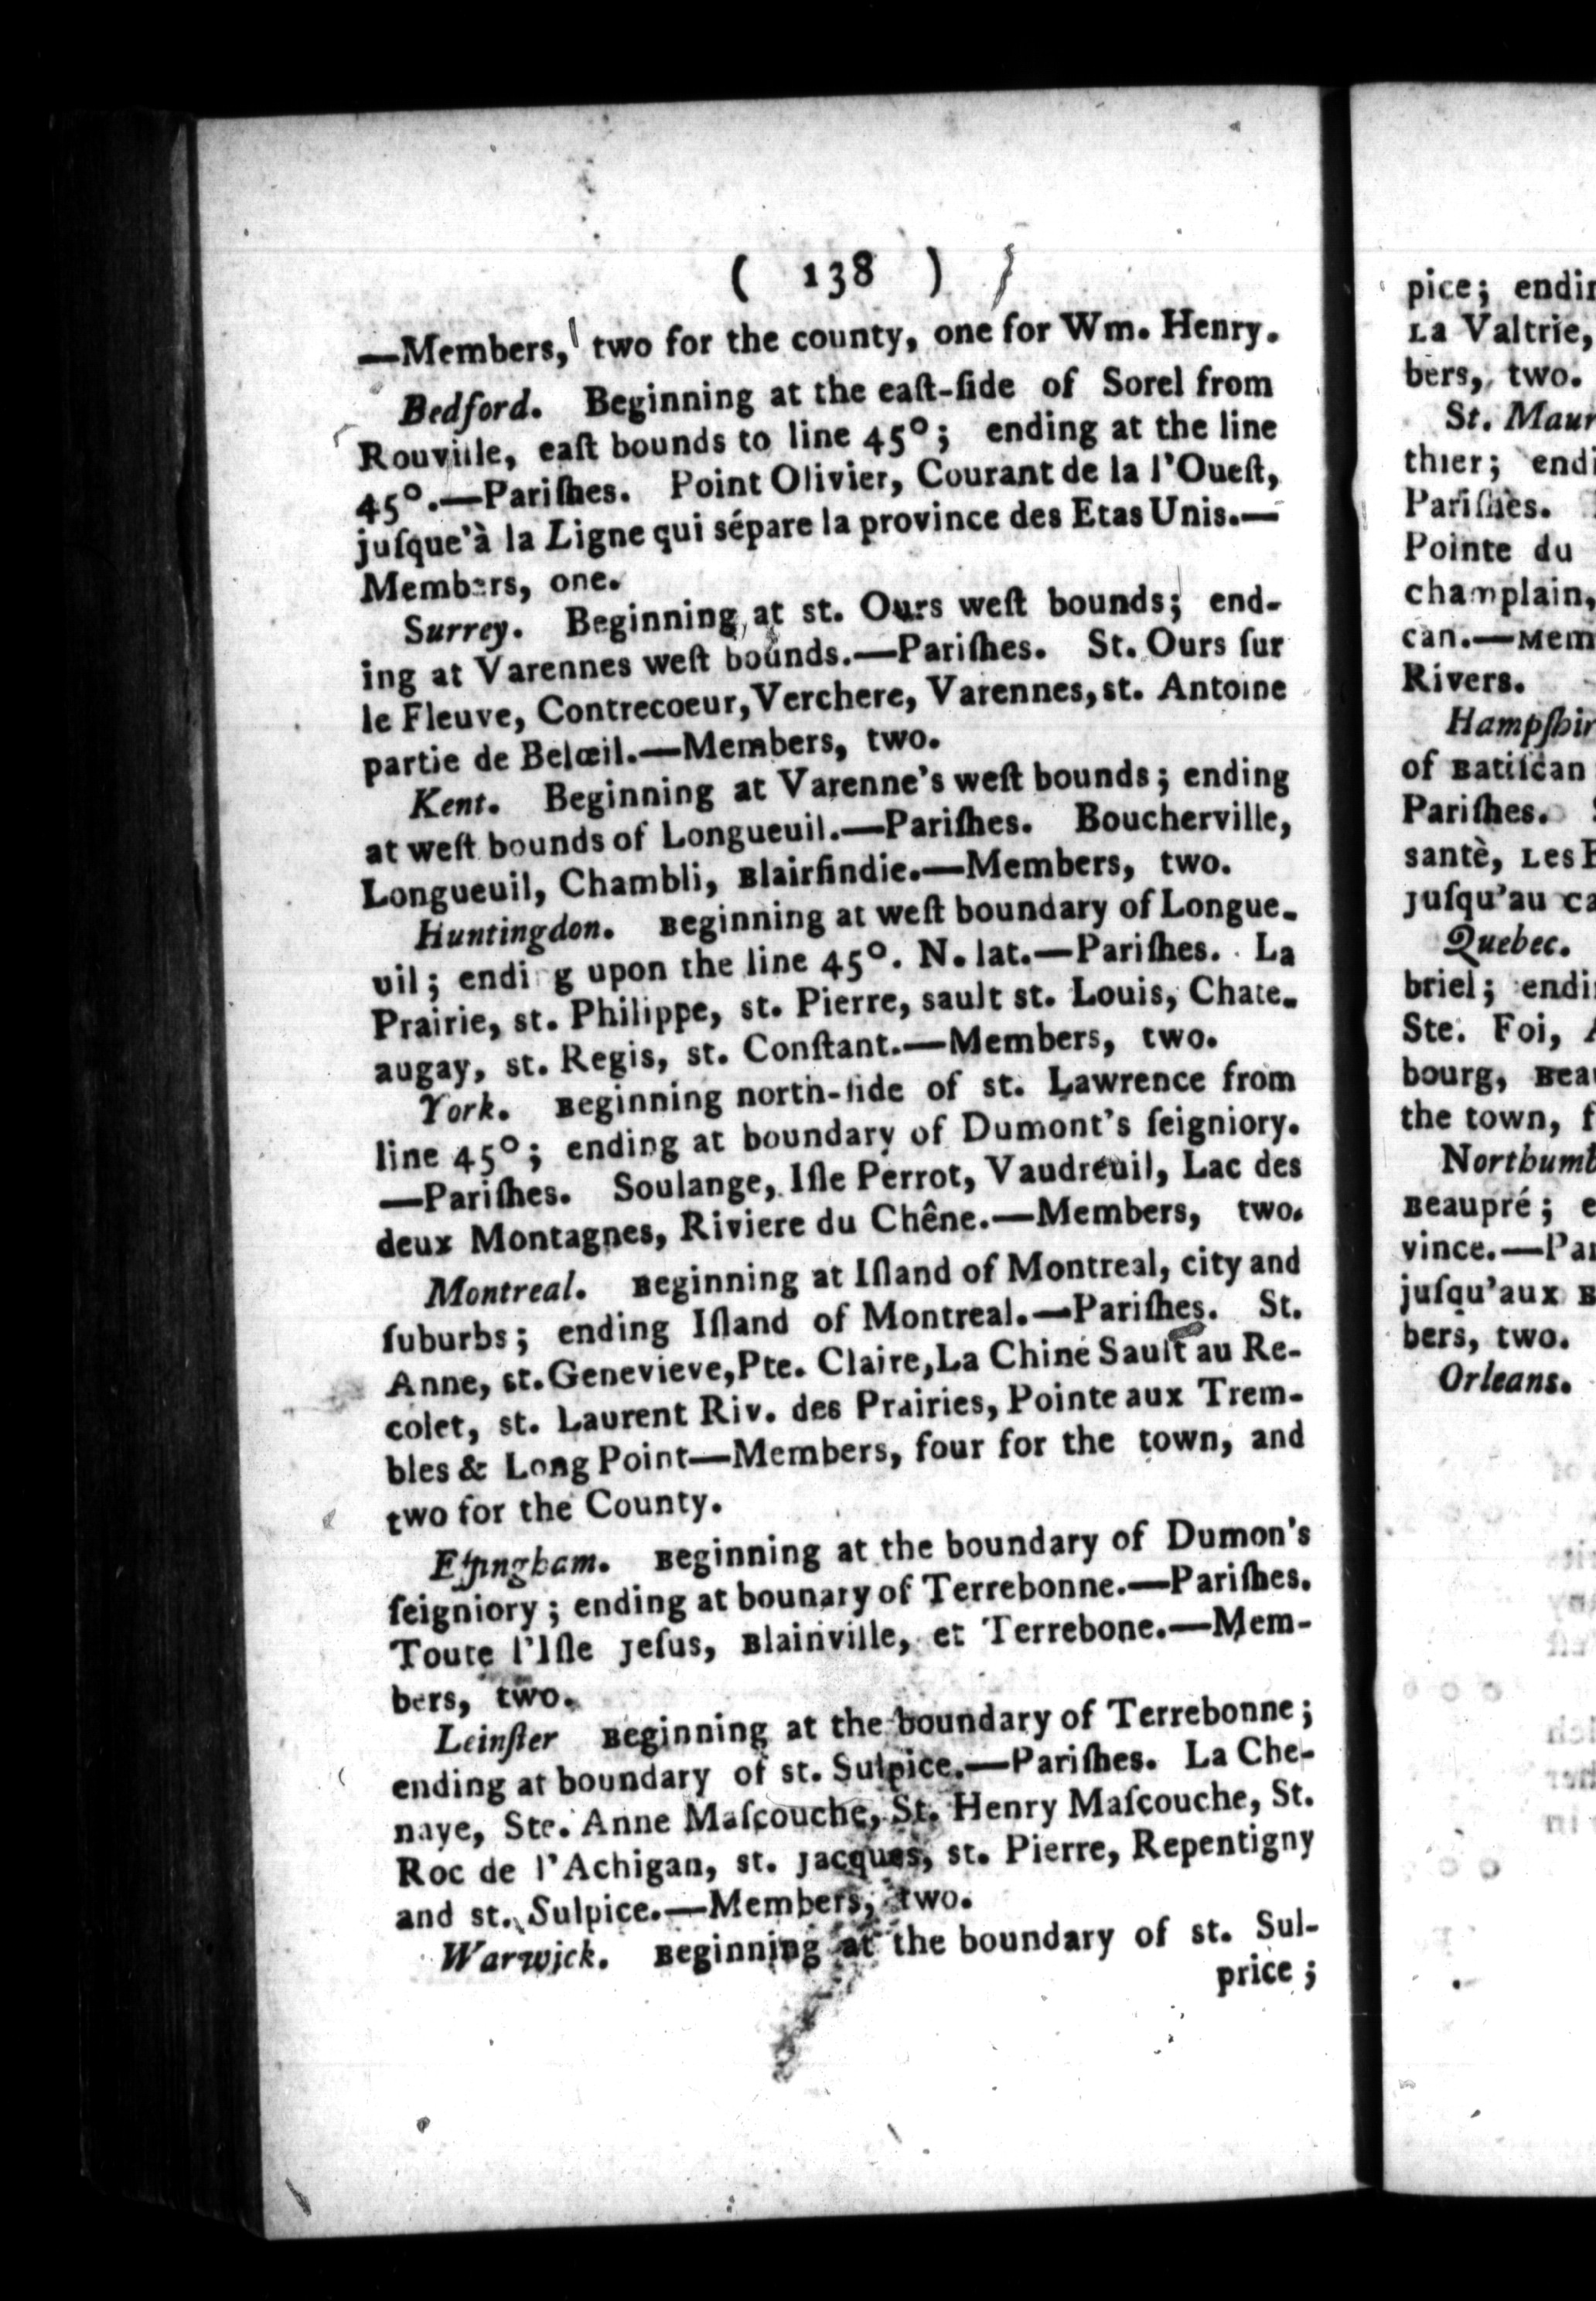 ( 138 )
—Members, two for the county, one for Wm. Henry.
Bedford. Beginning at the eaſt-ſide of Sorel from
Rouville, eaſt bounds to line 45°; ending at the line
45°.—Pariſhes. Point Olivier, Courant de la l'Oueſt,
juſque'à la Ligne qui sépare la province des Etas Unis.—
Members, one.
Surrey. Beginning at st. Ours weſt bounds; end-
ing at Varennes weſt bounds.—Pariſhes. St. Ours ſur
le Fleuve, Contrecoeur, Verchere, Varennes, st. Antoine
partie de Belœil.—Members, two.
Kent. Beginning at Varenne's weſt bounds; ending
at weſt bounds of Longueuil.—Pariſhes. Boucherville,
Longueuil, Chambli, Blairfindie.—Members, two.
Huntingdon. Beginning at weſt boundary of Longue-
uil; endi g upon the line 45°. N. lat.—Pariſhes. La
Prairie, st. Philippe, st. Pierre, sault st. Louis, Chate-
augay, st. Regis, st. Conſtant.—Members, two.
York. Beginning north-ſide of st. Lawrence from
line 45°; ending at boundary of Dumont's ſeigniory.
—Pariſhes. Soulange, Iſle Perrot, Vaudreuil, Lac des
deux Montagnes, Riviere du Chêne.—Members, two.
Montreal. Beginning at Iſland of Montreal, city and
ſuburbs; ending Iſland of Montreal.—Pariſhes. St.
Anne, st. Genevieve, Pte. Claire, La Chine Sault au Re-
colet, st. Laurent Riv. des Prairies, Pointe aux Trem-
bles & Long Point—Members, four for the town, and
two for the County.
Effingham. Beginning at the boundary of Dumon's
ſeigniory; ending at bounary of Terrebonne.—Pariſhes.
Toute l'Iſle Jeſus, Blainville, et Terrebone.—Mem-
bers, two.
Leinſter Beginning at the boundary of Terrebonne;
ending at boundary of st. Sulpice.—Pariſhes. La Che-
naye, Ste. Anne Maſcouche, St. Henry Maſcouche, St.
Roc de l'Achigan, st. Jacques, st. Pierre, Repentigny
and st. Sulpice.—Members, two.
Warwick. Beginning at the boundary of st. Sul-
price;
pice;
La Valtrie,
bers, two.
St.
thier;
Pariſhes.
Pointe du
champlain,
can.—
Rivers.
of Batiſcan
Pariſhes.
santè, Les
juſqu'au
Quebec.
briel;
Ste. Foi,
bourg,
the town,
Beaupré;
vince.—
juſqu'aux
bers, two.
Orleans.